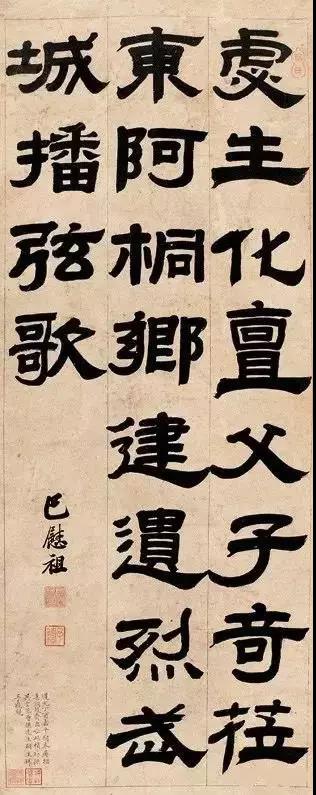 虙生化亶父子奇莅
東阿桐鄉建遺烈武
城播弦歌
巴慰祖